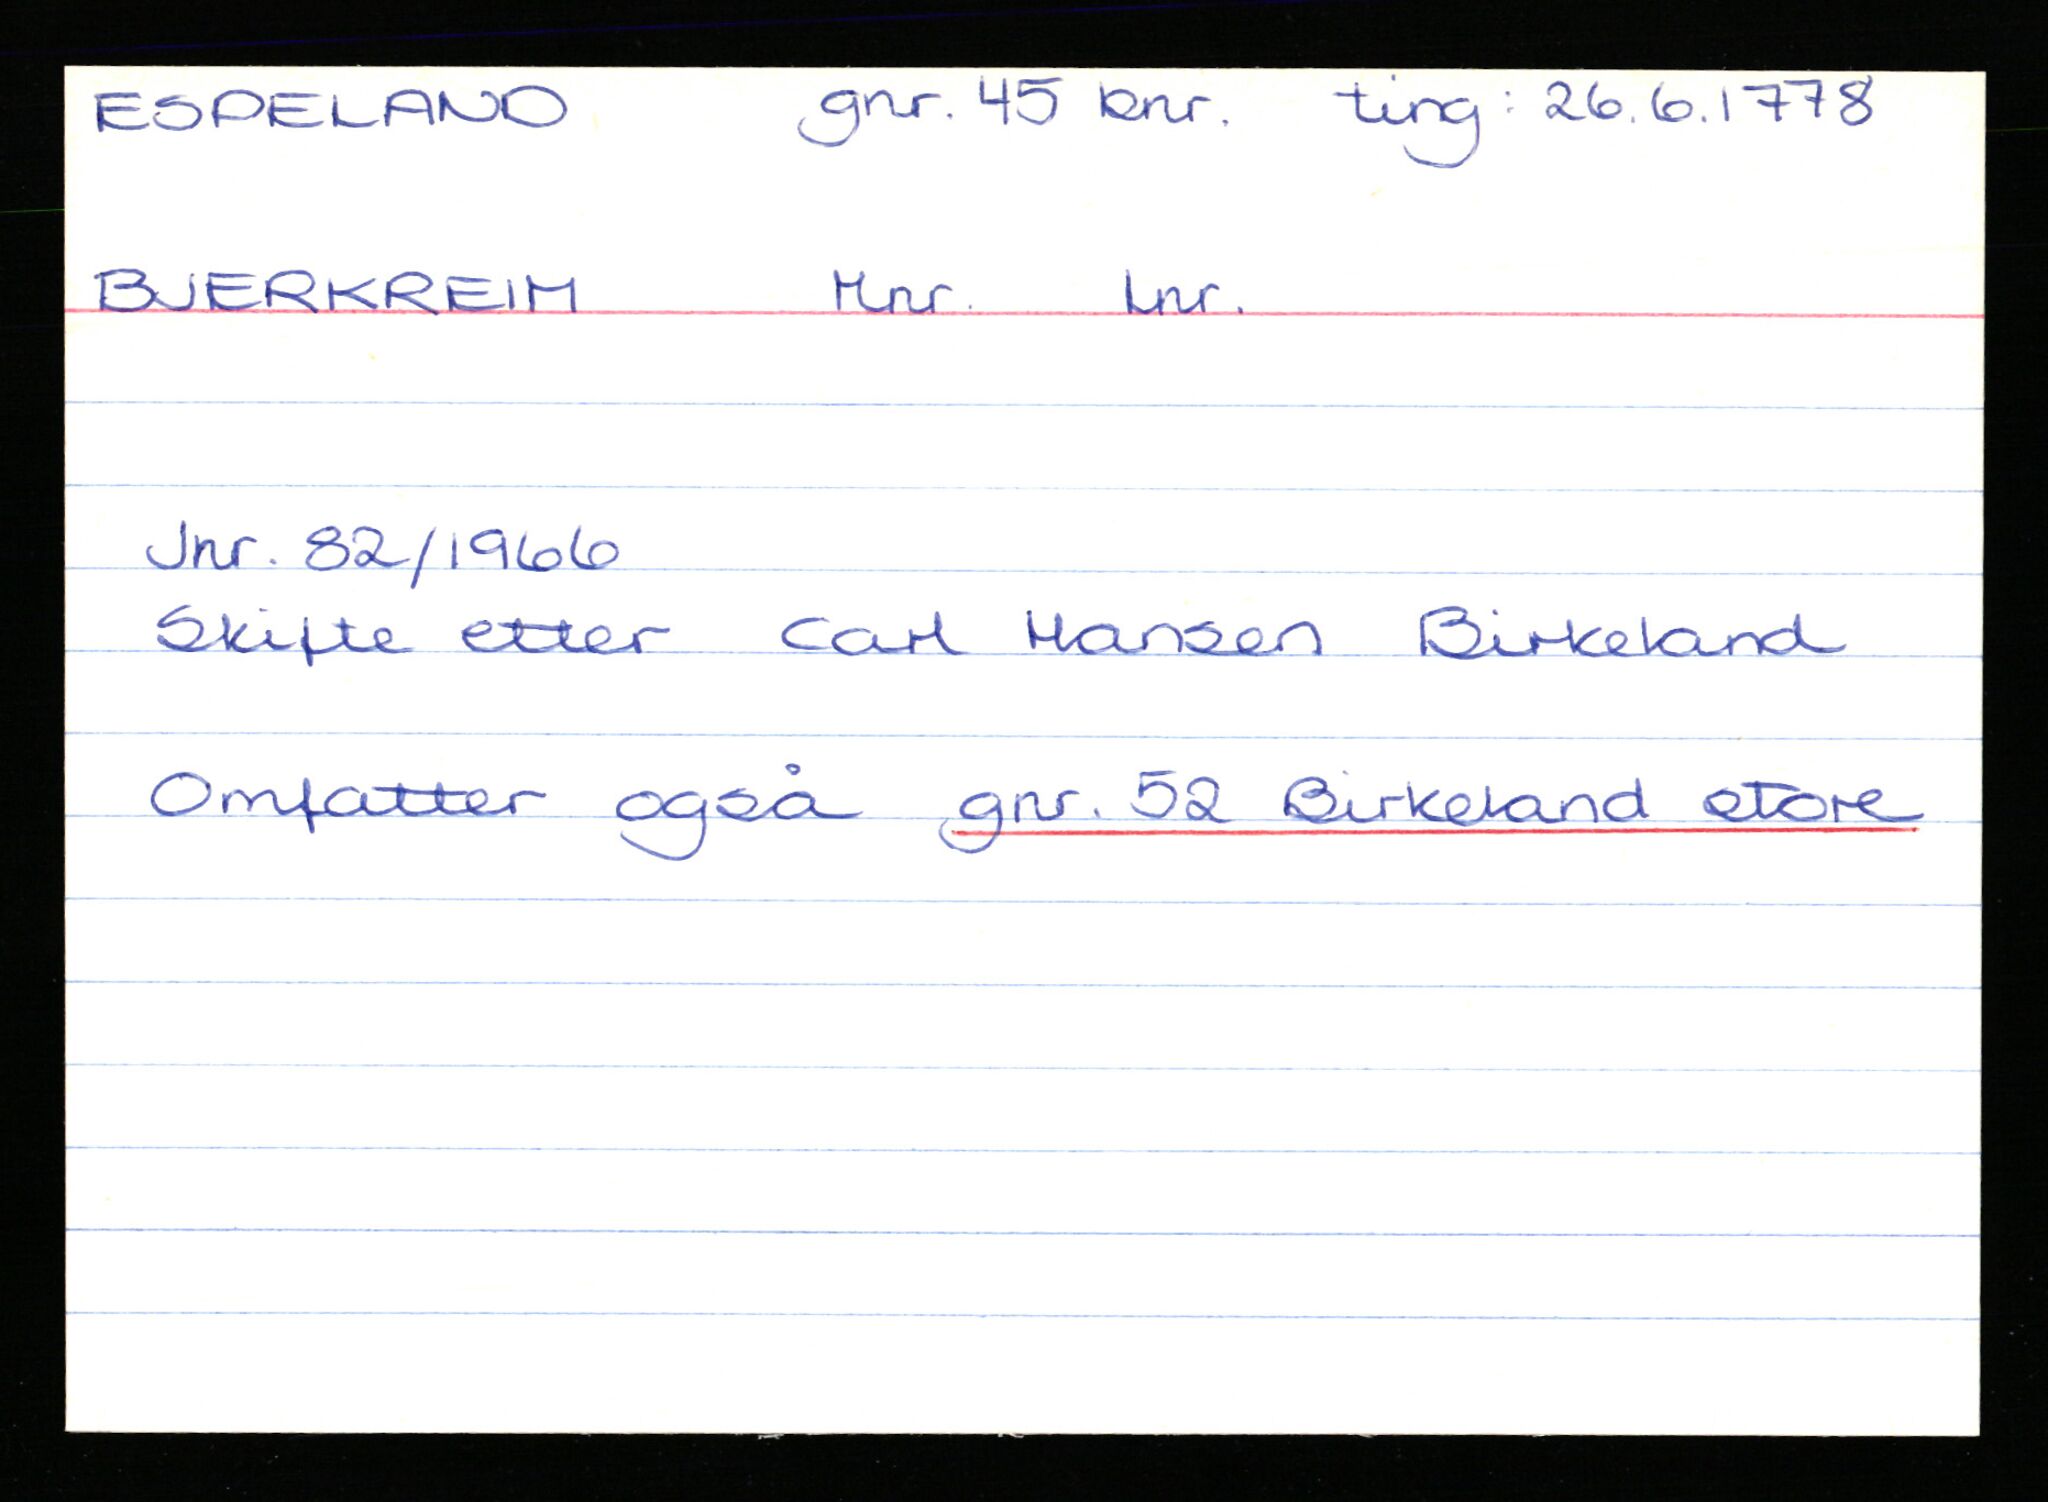 ESPELAND gnr. 45 bnr. ting: 26.6.1778
BJERKREIM Mnr. Lnr.
Jnr. 82/1966
Skifte etter Carl Hansen Birkeland
Omfatter også gnr. 52 Birkeland store